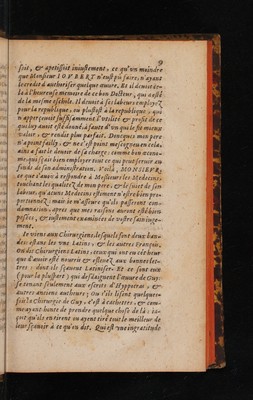 9
soit, & apetissoit iniustement, ce qu'un moindre
que Monsieur IOVBERT n'eust pû faire, n'ayant
le credit d'authoriser quelque œuure. Et il deuoit
à l'heureuse memoire de ce bon Docteur, qui a esté
de la mesme eschole. Il deuoit à ses labeurs employez
pour la republique, ou plustost à la republique, qui
n'apperçeuoit suffisamment l'vtilité & profit de ce
qui luy auoit esté donné, à faute d'vn qui le fit mieux
valoir, & rendit plus parfait. Doncques mon pere
n'a point failly, & ne s'est point mesconu en cela,
ains a faict deuoir de sa charge: comme bon œcono-
me, qui sçait bien employer tout ce qui peut seruir au
fonds de son administration. Voilà, MONSIEVR,
ce que i'auois à respondre à Messieurs les Medecins,
touchant les qualitez de mon pere, & le suiet de son
labeur, qu'aucuns Medecins estiment n'estre bien pro-
portionnez: mais ie m'asseure qu'ils passeront con-
damnation, apres que mes raisons auront esté bien
posées, & iustement examinées de vostre sain iuge-
ment.
Ie viens aux Chirurgiens, lesquels sont deux ban-
des: estans les vns Latins, & les autres François,
Ou dis Chirurgiens Latins, ceux qui ont eu cét heur
que d'auoir esté nourris & esleuez aux bonnes let-
tres; dont ils sçauent Latiniser. Et ce sont ceux
(pour la pluspart) qui desdaignent l'œuure de Guy,
se tenans seulement aux escrits d'Hyppocras, &
autres anciens autheurs: Ou s'ils lisent quelques-
fois la Chirurgie de Guy, c'est à cachettes, & com-
me ayant honte de prendre quelque chose de là: iaçoit
qu'ils en tirent ou ayent tiré tout le meilleur de
leur sçauoir à ce qu'on dit. Qui est vne ingratitude